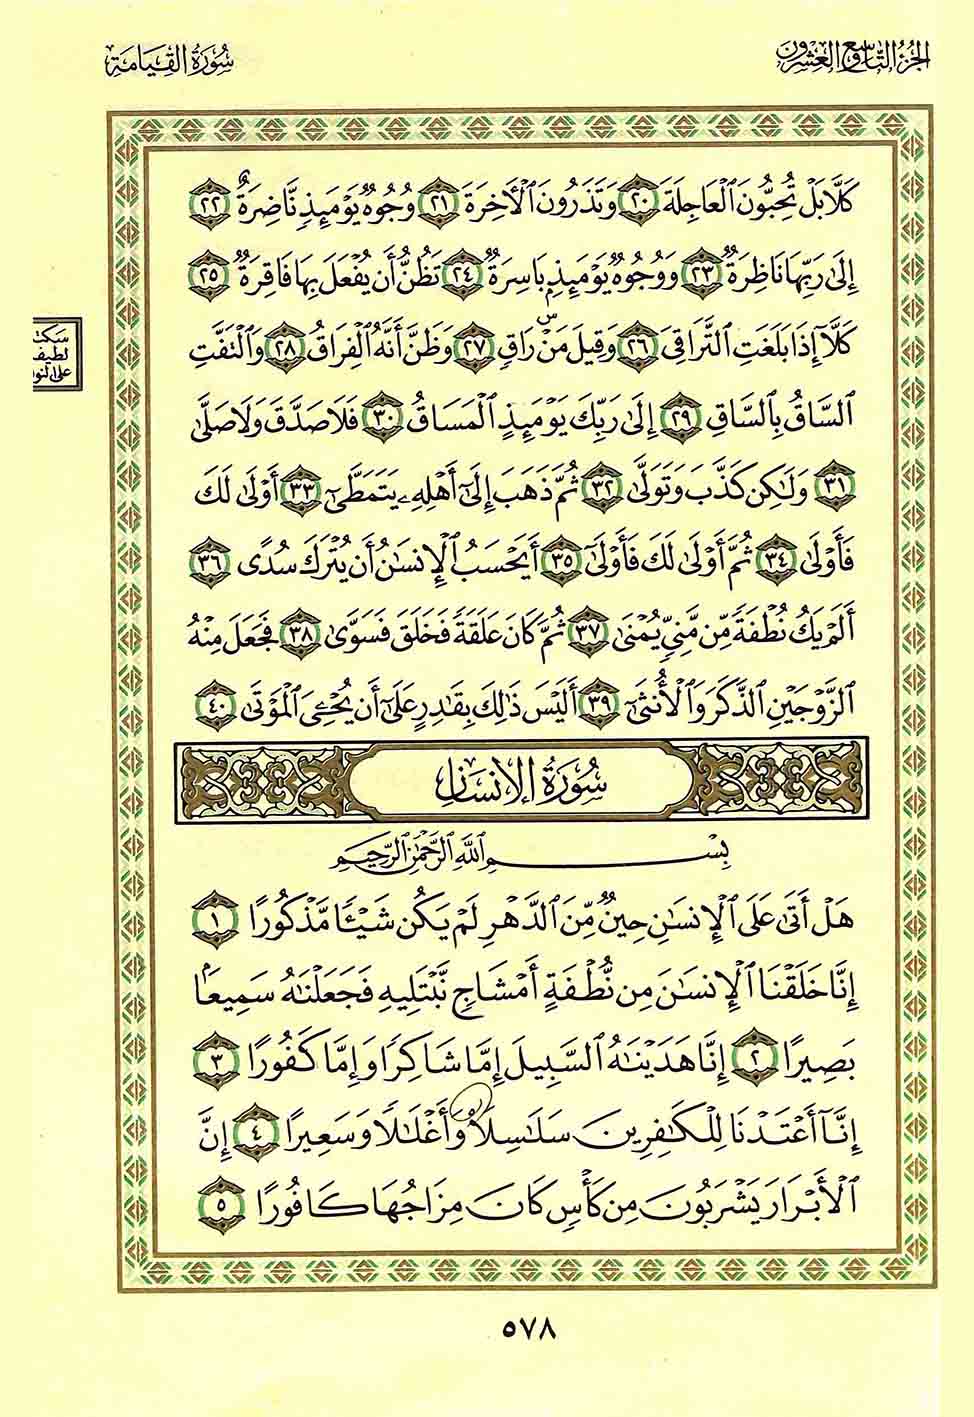 الجزء التاسع والعشرون
سورة القيامة
كَلَّا بَلْ تُحِبُّونَ ٱلْعَاجِلَةَ ٢٠ وَتَذَرُونَ ٱلْأَخِرَةَ ٢١ وُجُوهٌ يَوْمَئِذٍ نَّاضِرَةٌ ٢٢
إِلَىٰ رَبِّهَا نَاظِرَةٌ ٢٣ وَوُجُوهٌ يَوْمَئِذٍ بَاسِرَةٌ ٢٤ تَظُنُّ أَن يُفْعَلَ بِهَا فَاقِرَةٌ ٢٥
كَلَّآ إِذَا بَلَغَتِ ٱلتَّرَاقِىَ ٢٦ وَقِيلَ مَنْ ۜ رَاقٍ ٢٧ وَظَنَّ أَنَّهُ ٱلْفِرَاقُ ٢٨ وَٱلْتَفَّتِ
ٱلسَّاقُ بِٱلسَّاقِ ٢٩ إِلَىٰ رَبِّكَ يَوْمَئِذٍ ٱلْمَسَاقُ ٣٠ فَلَا صَدَّقَ وَلَا صَلَّىٰ
٣١ وَلَٰكِن كَذَّبَ وَتَوَلَّىٰ ٣٢ ثُمَّ ذَهَبَ إِلَىٰٓ أَهْلِهِۦ يَتَمَطَّىٰٓ ٣٣ أَوْلَىٰ لَكَ
فَأَوْلَىٰ ٣٤ ثُمَّ أَوْلَىٰ لَكَ فَأَوْلَىٰٓ ٣٥ أَيَحْسَبُ ٱلْإِنسَٰنُ أَن يُتْرَكَ سُدًى ٣٦
أَلَمْ يَكُ نُطْفَةً مِّن مَّنِىٍّ يُمْنَىٰ ٣٧ ثُمَّ كَانَ عَلَقَةً فَخَلَقَ فَسَوَّىٰ ٣٨ فَجَعَلَ مِنْهُ
ٱلزَّوْجَيْنِ ٱلذَّكَرَ وَٱلْأُنثَىٰٓ ٣٩ أَلَيْسَ ذَٰلِكَ بِقَٰدِرٍ عَلَىٰٓ أَن يُحْۦِىَ ٱلْمَوْتَىٰ ٤٠
سورة الإنسان
بِسْمِ ٱللَّهِ ٱلرَّحْمَٰنِ ٱلرَّحِيمِ
هَلْ أَتَىٰ عَلَى ٱلْإِنسَٰنِ حِينٌ مِّنَ ٱلدَّهْرِ لَمْ يَكُن شَيْـًٔا مَّذْكُورًا ١
إِنَّا خَلَقْنَا ٱلْإِنسَٰنَ مِن نُّطْفَةٍ أَمْشَاجٍ نَّبْتَلِيهِ فَجَعَلْنَٰهُ سَمِيعًۢا
بَصِيرًا ٢ إِنَّا هَدَيْنَٰهُ ٱلسَّبِيلَ إِمَّا شَاكِرًا وَإِمَّا كَفُورًا ٣
إِنَّآ أَعْتَدْنَا لِلْكَٰفِرِينَ سَلَٰسِلَا۟ وَأَغْلَٰلًا وَسَعِيرًا ٤ إِنَّ
ٱلْأَبْرَارَ يَشْرَبُونَ مِن كَأْسٍ كَانَ مِزَاجُهَا كَافُورًا ٥
٥٧٨
سكت
لطيف
على